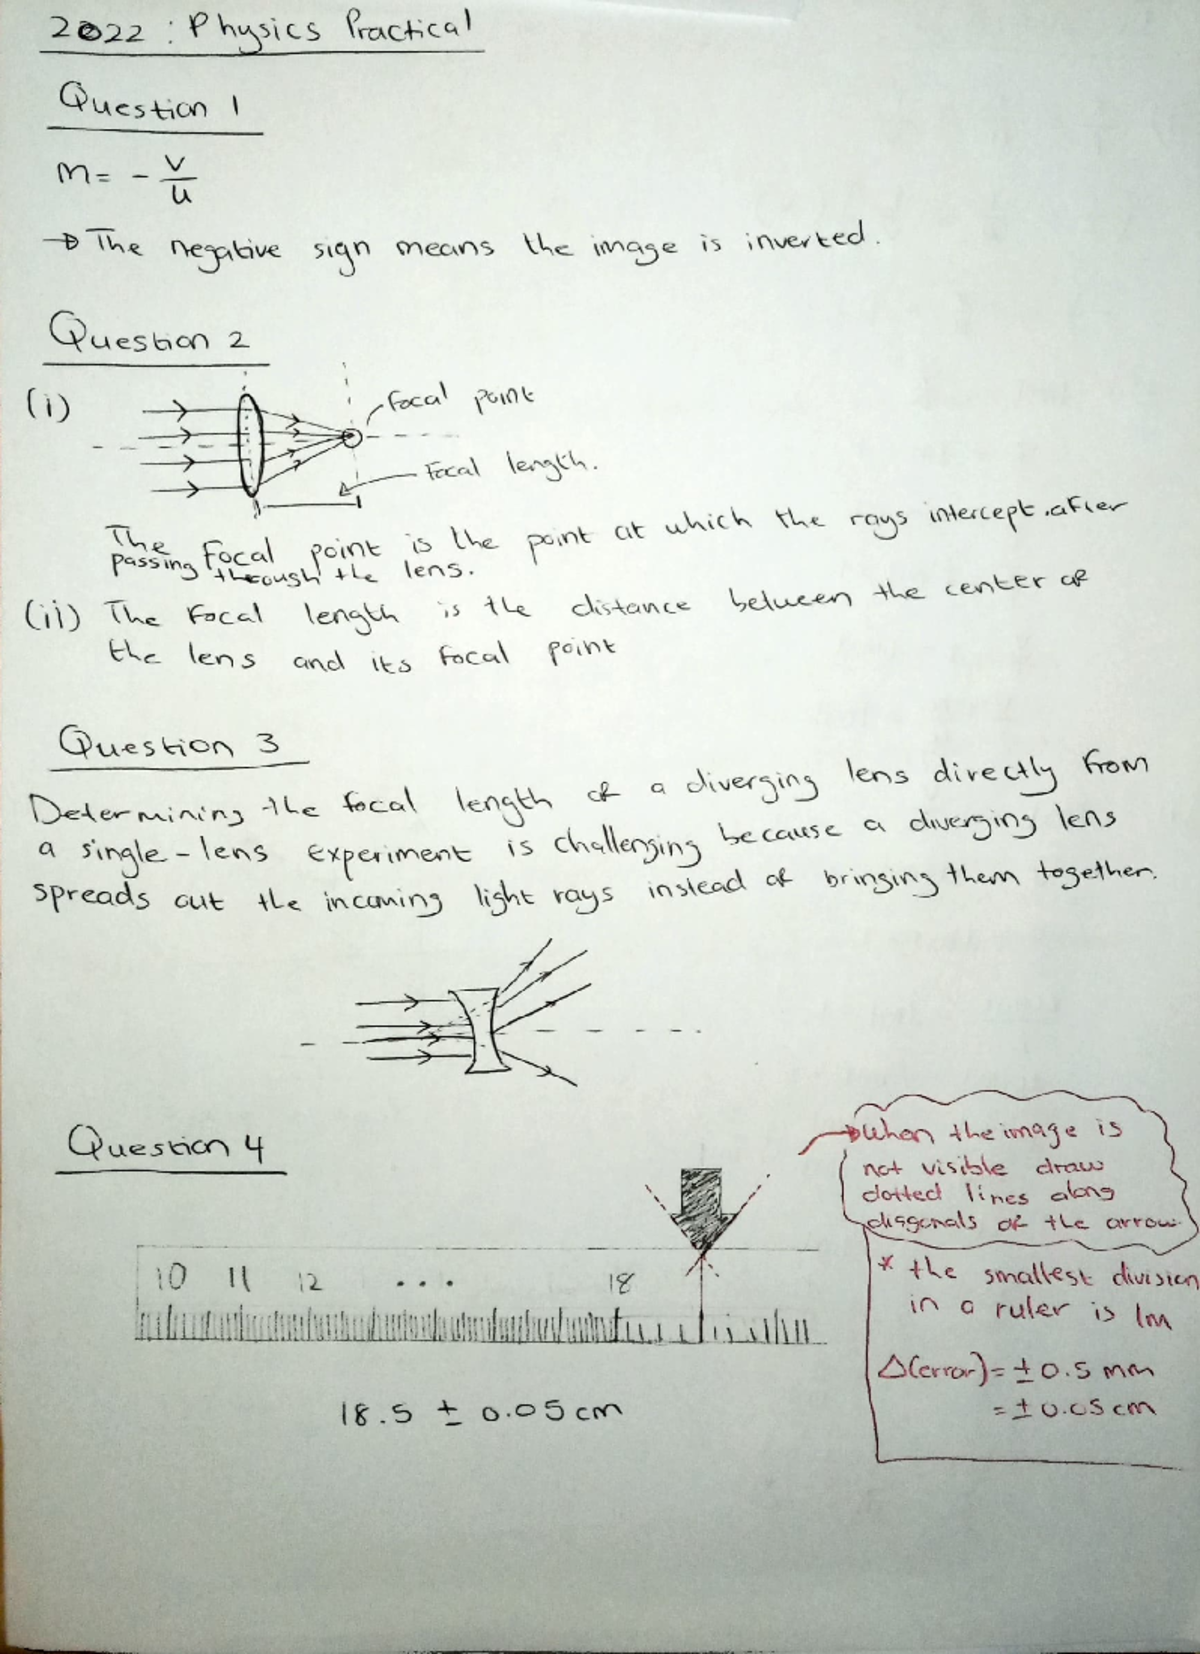 2022 : Physics Practical
Question 1
m = - v/u
→ The negative sign means the image is inverted.
Question 2
(i)
focal point
Focal length.
The Focal point is the point at which the rays intercept after
passing through the lens.
(ii) The Focal length is the distance between the center of
the lens and its focal point
Question 3
Determining the focal length of a diverging lens directly from
a single-lens experiment is challenging because a diverging lens
spreads out the incoming light rays instead of bringing them together.
Question 4
→ When the image is
not visible draw
dotted lines along
diagonals of the arrow
10 11 12 ... 18
* the smallest division
in a ruler is 1m
Δ(error) = ± 0.5 mm
= ± 0.05 cm
18.5 ± 0.05 cm